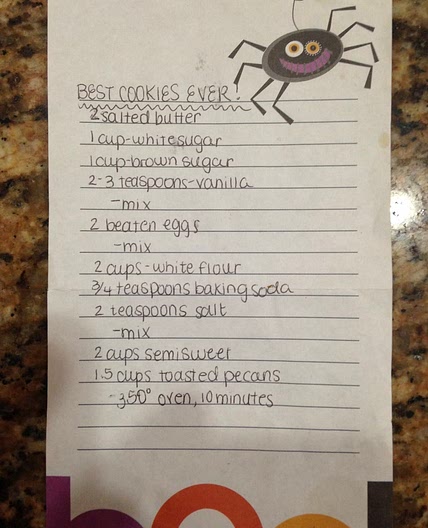 BEST COOKIES EVER!
2 salted butter
1 cup-white sugar
1 cup-brown sugar
2-3 teaspoons-vanilla
-mix
2 beaten eggs
-mix
2 cups-white flour
3/4 teaspoons baking soda
2 teaspoons salt
-mix
2 cups semisweet
1.5 cups toasted pecans
-350° oven, 10 minutes
boo